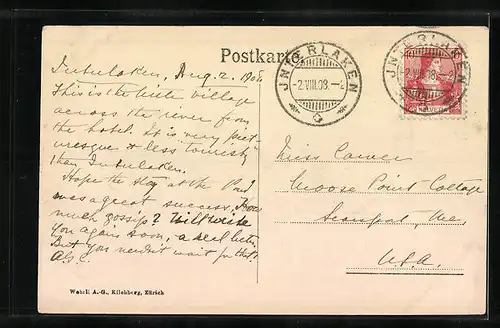 Postkarte
JNTERLAKEN
-2.VIII.08.-2
JNTERLAKEN
-2.VIII.08.-2
Interlaken, Aug. 2. 1908.
This is the little village
across the river from
the hotel. It is very pict-
uresque & less touristy
than Interlaken.
Hope the stay at the
was a great success.
much gossip? Will write
you again soon, a real letter.
But you needn't wait for that!
Miss
Moose Point Cottage
Seaport, Me.
U.S.A.
Wehrli A.-G., Kilchberg, Zürich